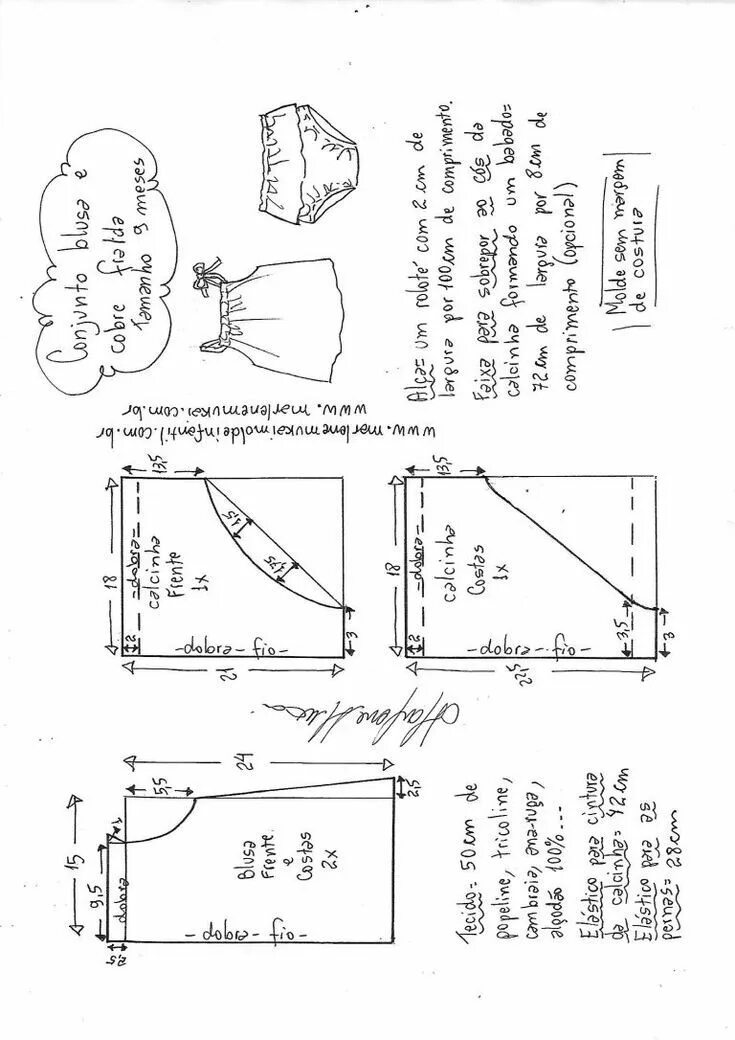 Conjunto blusa e
cobre fralda
Tamanho 9 meses
Alças um roloté com 2 cm de
largura por 100 cm de comprimento.
Faixa para sobrepor ao cós da
calcinha formando um babado=
72 cm de largura por 8 cm de
comprimento (opcional)
Molde sem margem
de costura
www.marlenemukai.com.br
www.marlenemukaimoldeinfantil.com.br
13,5
18
=dobra=
calcinha
Frente
1x
1,5
1,75
2
-dobra-fio-
3
21
13,5
18
=dobra=
calcinha
Costas
1x
2
-dobra-fio-
3,5
3
22,5
24
5,5
15
1
9,5
dobra
2,5
Blusa
Frente
e
Costas
2x
-dobra-fio-
2,5
Tecido= 50 cm de
popeline, tricoline,
cambraia, anarruga,
algodão 100%...
Elástico para cintura
da calcinha= 42 cm
Elástico para as
pernas= 28 cm